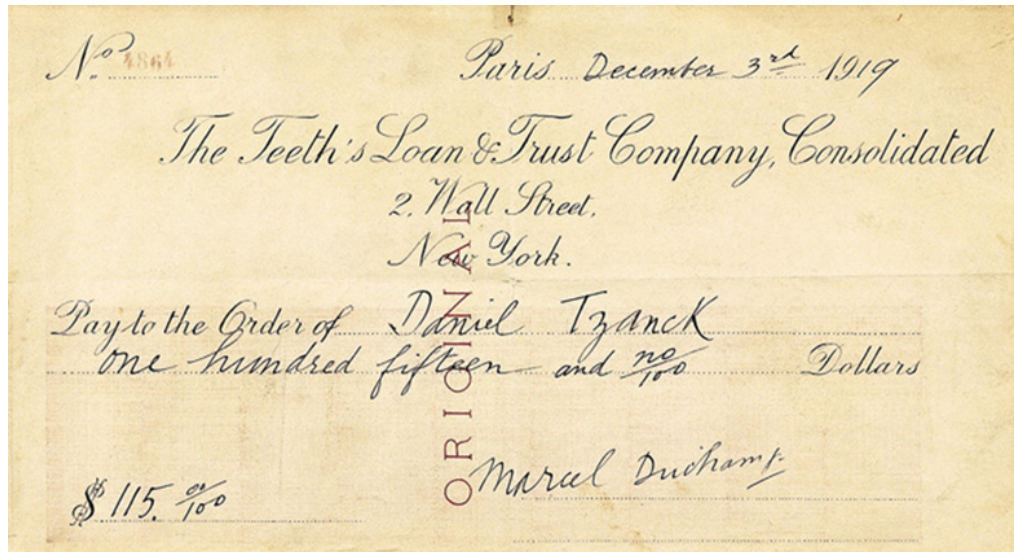 No. 4864
Paris December 3rd 1919
The Teeth's Loan & Trust Company, Consolidated
2, Wall Street,
New York.
Pay to the Order of Daniel Tzanck
one hundred fifteen and no/100 Dollars
$ 115. 00/100
Marcel Duchamp
ORIGINAL